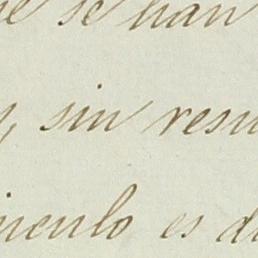 se han
sin resu
inculo es d